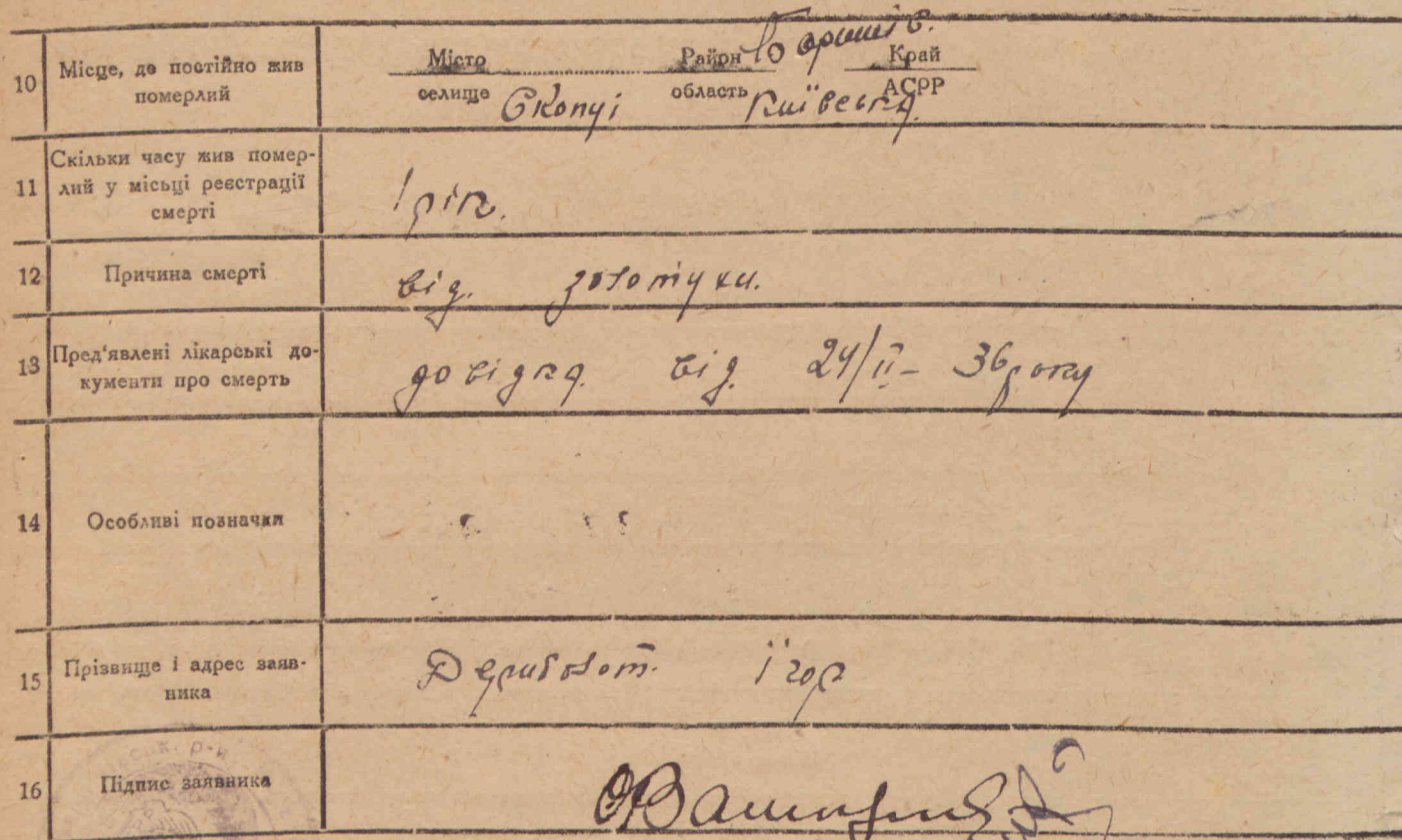 10 Місце, де постійно жив
померлий
Місто Район Баришів. Край
селище Скопці область Київська АСРР
11 Скільки часу жив помер-
лий у місьці реєстрації
смерті
1 рік.
12 Причина смерті
від. золотухи.
13 Пред'явлені лікарські до-
кументи про смерть
довідка від. 24/II - 36 року
14 Особливі позначки
15 Прізвище і адрес заяв-
ника
Ігор
16 Підпис заявника